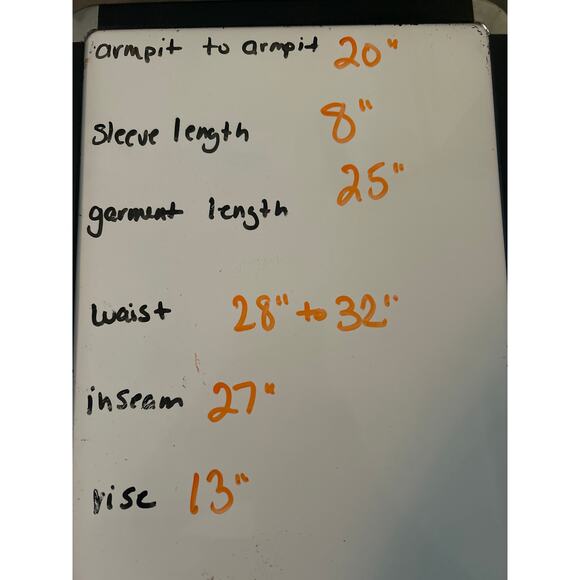 armpit to armpit 20"
sleeve length 8"
garment length 25"
waist 28" to 32"
inseam 27"
rise 13"